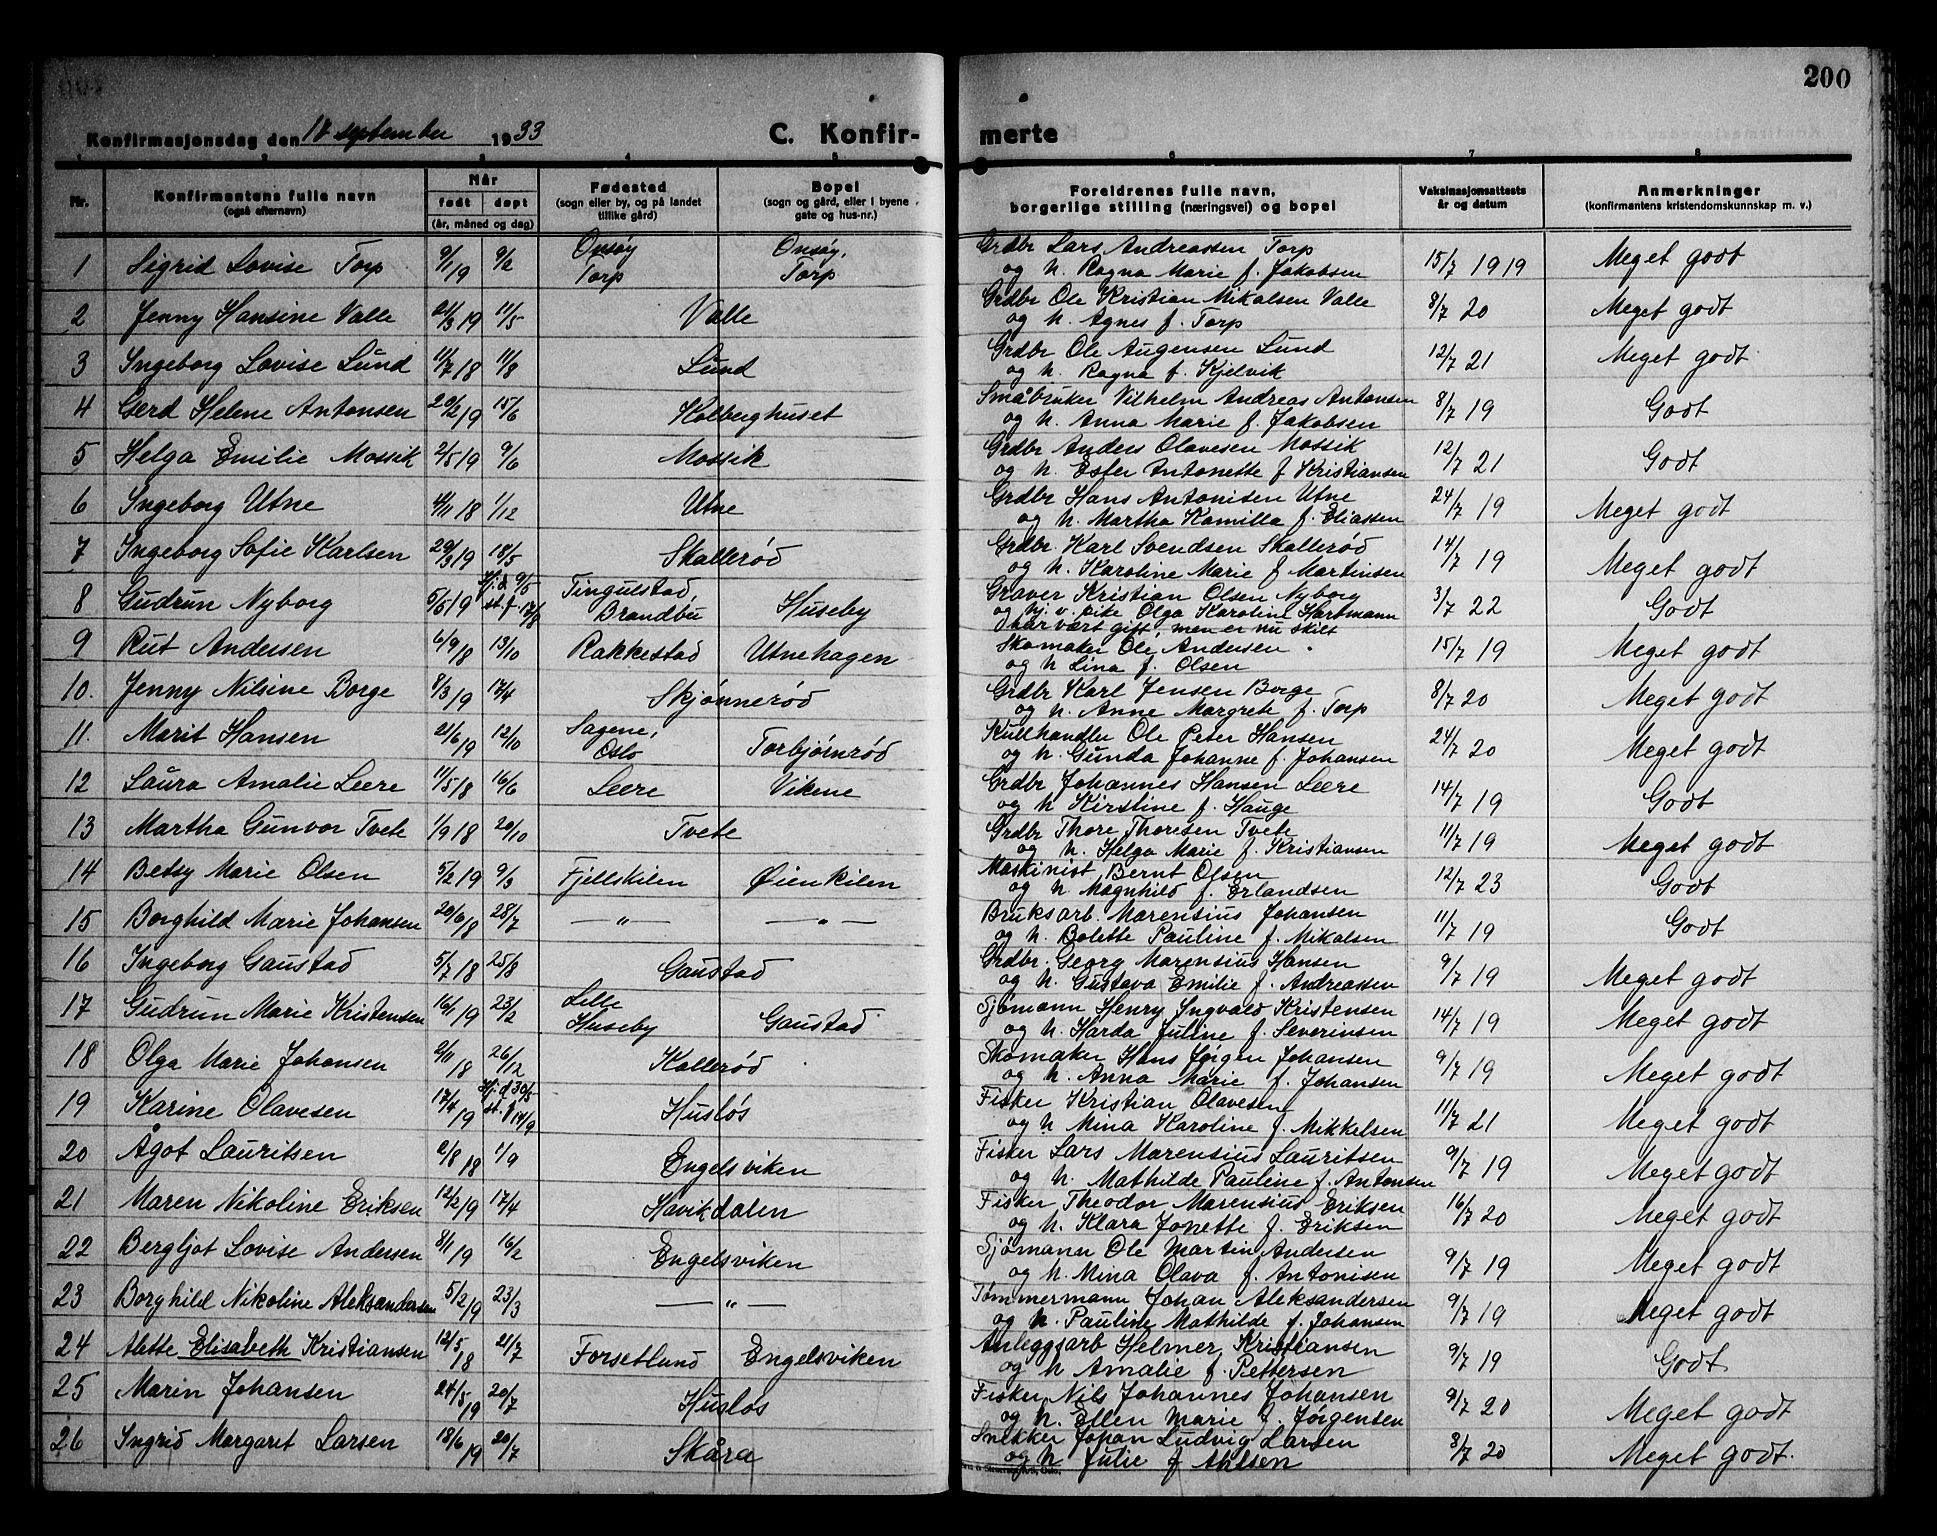 200
Konfirmasjonsdag den 18 september 1933
C. Konfir- merte
1 2 3 4 5 6 7 8
Nr.
Konfirmantens fulle navn
(også efternavn)
Når
født døpt
(år, måned og dag)
Fødested
(sogn eller by, og på landet
tillike gård)
Bopel
(sogn og gård, eller i byene
gate og hus-nr.)
Foreldrenes fulle navn,
borgerlige stilling (næringsvei) og bopel
Vaksinasjonsattests
år og datum
Anmerkninger
(konfirmantens kristendomskunnskap m. v.)
1 Sigrid Lovise Torp 9/1 19 9/2 Onsøy Torp Onsøy, Torp Grdbr Lars Andreassen Torp 15/7 1919 Meget godt
og h. Ragna Marie f. Jakobsen
2 Jenny Hansine Valle 21/3 19 11/5 Valle Grdbr Ole Kristian Mikalsen Valle 8/7 20 Meget godt
og h. Agnes f. Torp
3 Ingeborg Lovise Lund 11/7 18 11/8 Lund Grdbr Ole Augensen Lund 12/7 21 Meget godt
og h. Ragna f. Kjelvik
4 Gerd Helene Antonsen 20/2 19 15/6 Kolberghuset Småbruker Vilhelm Andreas Antonsen 8/7 19 Godt
og h. Anna Marie f. Jakobsen
5 Helga Emilie Mossik 2/5 19 9/6 Mossik Grdbr Anders Olavesen Mossik 12/7 21 Godt
og h. Ester Antonette f Kristiansen
6 Ingeborg Utne 4/11 18 1/12 Utne Grdbr Hans Antonisen Utne 24/7 19 Meget godt
og h. Martha Kamilla f. Eliassen
7 Ingeborg Sofie Karlsen 29/3 19 18/5 Skallerød Grdbr. Karl Svendsen Skallerød 14/7 19 Meget godt
og h. Karoline Marie f Martinsen
8 Gudrun Nyborg 5/5 19 Hj.d 9/5 st. f. 17/8 Tingulstad, Brandbu Huseby Graver Kristian Olsen Nyborg 3/7 22 Godt
og hj. v. pike Olga Karoline Hartmann
har vært gift, men er nu skilt
9 Rut Andersen 6/9 18 13/10 Rakkestad Utnehagen Skomaker Ole Andersen 15/7 19 Meget godt
og h Lina f. Olsen
10. Jenny Nilsine Borge 8/3 19 17/4 Skjønnerød Grdbr Karl Jensen Borge 8/7 20 Meget godt
og h. Anne Margrete f. Torp
11. Marit Hansen 21/6 19 12/10 Sagene, Oslo Torbjørnrød Kullhandler Ole Peter Hansen 24/7 20 Meget godt
og h. Gunda Johanne f. Johansen
12 Laura Amalie Leere 11/5 18 16/6 Leere Vikene Grdbr Johannes Hansen Leere 14/7 19 Godt
og h Kirstine f. Hauge
13 Martha Gunvor Tvete 1/9 18 20/10 Tvete Grdbr Thore Thoresen Tvete 11/7 19 Meget godt
og h. Helga Marie f. Kristiansen
14 Betsy Marie Olsen 5/2 19 9/3 Fjellskilen Øienkilen Maskinist Bernt Olsen 12/7 23 Godt
og h Magnhild f. Erlandsen
15 Borghild Marie Johansen 20/6 18 28/7 — " — — " — Bruksarb. Marensius Johansen 11/7 19 Godt
og h. Bolette Pauline f. Mikalsen
16 Ingeborg Gaustad 5/7 18 25/8 Gaustad Grdbr. Georg Marensius Hansen 9/7 19 Meget godt
og h. Gustava Emilie f. Andreassen
17 Gudrun Marie Kristensen 16/1 19 23/2 Lille Huseby Gaustad Sjømann Henry Ingvald Kristensen 14/7 19 Meget godt
og h. Harda Juline f. Severinsen
18 Olga Marie Johansen 2/11 18 26/12 Kallerød Skomaker Hans Jørgen Johansen 9/7 19 Meget godt
og h. Anna Marie f. Johansen
19 Karine Olavesen 17/4 19 Hj.d 30/5 st. f 14/9 Husløs Fisker Kristian Olavesen 11/7 21 Meget godt
og h Mina Karoline f. Mikkelsen
20 Ågot Lauritsen 2/8 18 1/9 Engelsviken Fisker Lars Marensius Lauritsen 9/7 19 Meget godt
og h. Mathilde Pauline f. Antonsen
21 Maren Nikoline Eriksen 12/2 19 17/4 Havikdalen Fisker Theodor Marensius Eriksen 16/7 20 Meget godt
og h. Klara Jonette f. Eriksen
22 Bergljot Lovise Andersen 8/1 19 16/2 Engelsviken Sjømann Ole Martin Andersen 9/7 19 Meget godt
og h. Mina Olava f. Antonisen
23 Borghild Nikoline Aleksandersen 5/2 19 23/3 — " — Tømmermann Johan Aleksandersen 9/7 19 Meget godt
og h. Pauline Mathilde f. Johansen
24 Alette Elisabeth Kristiansen 12/5 18 21/7 Forsetlund Engelsviken Anleggsarb Helmer Kristiansen 9/7 19 Godt
og h Amalie f. Pettersen
25 Marin Johansen 24/5 19 20/7 Husløs Fisker Nils Johannes Johansen 9/7 20 Meget godt
og h. Ellen Marie f. Jørgensen
26 Ingrid Margaret Larsen 18/6 19 20/7 Skåra Snekker Johan Ludvig Larsen 8/7 20 Meget godt.
og h Julie f Ahlsen